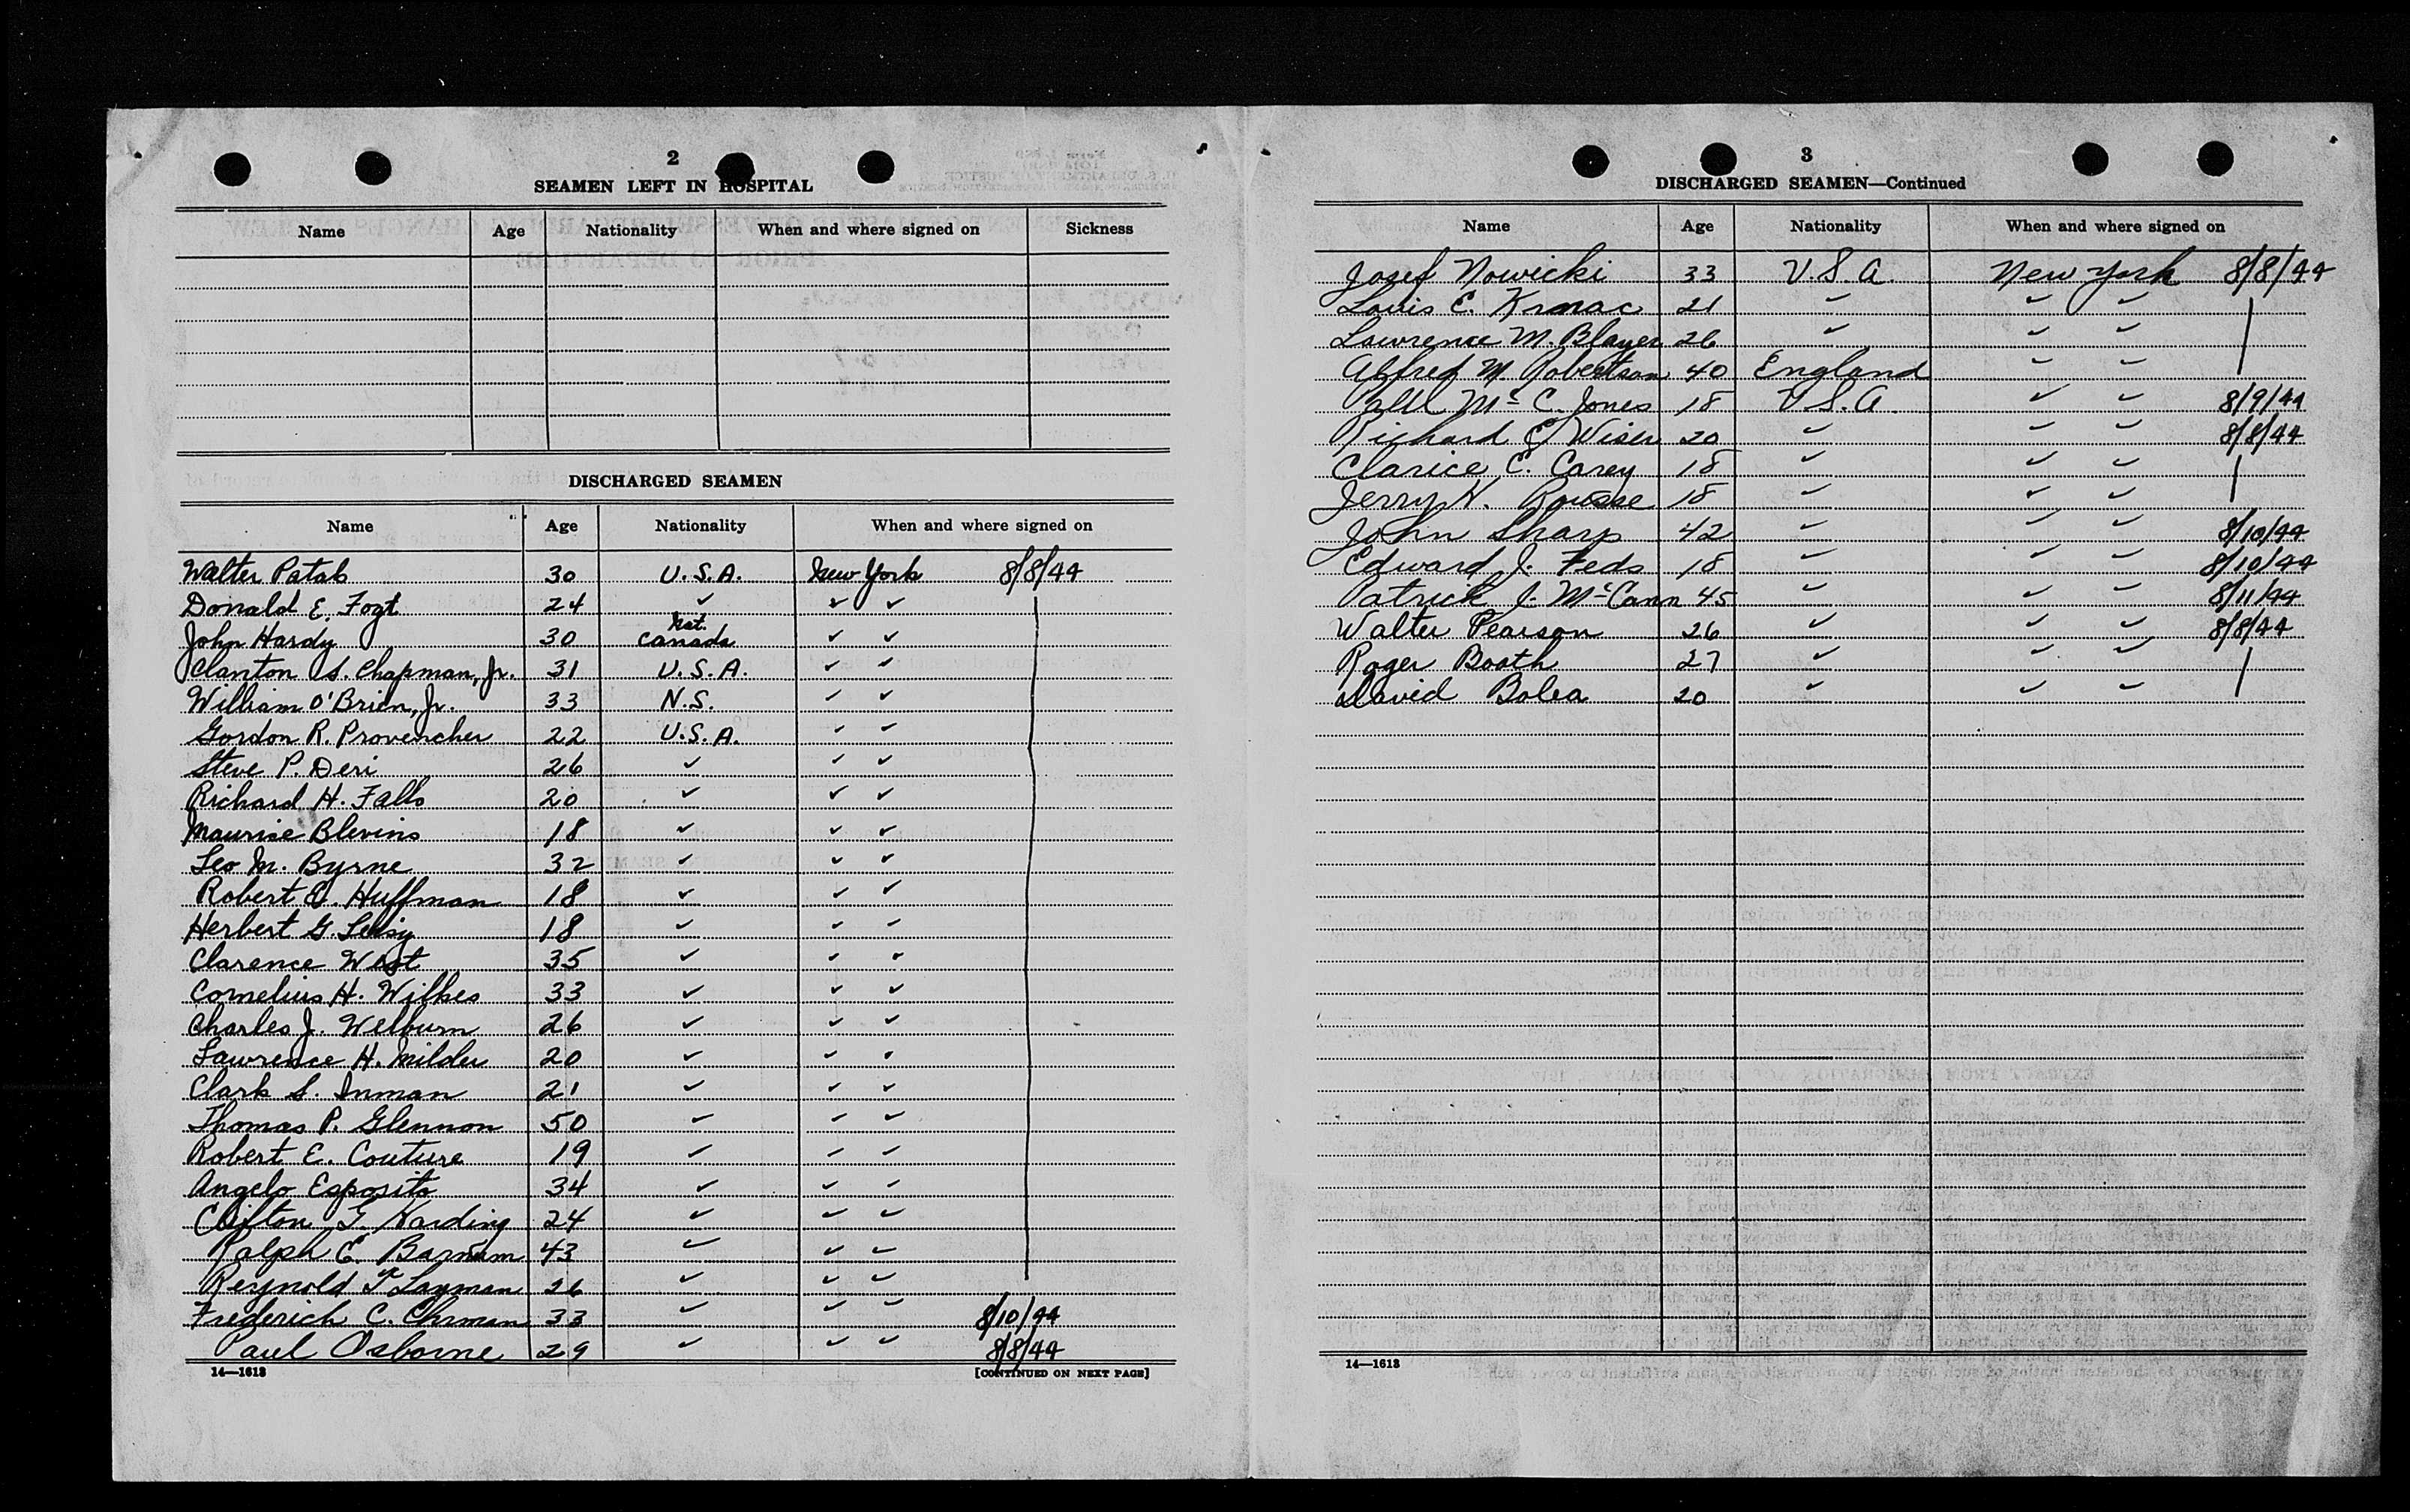 2
SEAMEN LEFT IN HOSPITAL
Name Age Nationality When and where signed on Sickness
DISCHARGED SEAMEN
Name Age Nationality When and where signed on
Walter Patab 30 U.S.A. New York 8/8/44
Donald E. Fogt 24 ✓ ✓ ✓
Nat.
John Hardy 30 Canada ✓ ✓
Clanton S. Chapman, Jr. 31 U.S.A. ✓ ✓
William O'Brien, Jr. 33 N.S. ✓ ✓
Gordon R. Provencher 22 U.S.A. ✓ ✓
Steve P. Deri 26 ✓ ✓ ✓
Richard H. Falls 20 ✓ ✓ ✓
Maurise Blevins 18 ✓ ✓ ✓
Leo M. Byrne 32 ✓ ✓ ✓
Robert E. Huffman 18 ✓ ✓ ✓
Herbert G. 18 ✓ ✓ ✓
Clarence West 35 ✓ ✓ ✓
Cornelius H. Wilkes 33 ✓ ✓ ✓
Charles J. Welburn 26 ✓ ✓ ✓
Lawrence H. Milder 20 ✓ ✓ ✓
Clark S. Inman 21 ✓ ✓ ✓
Thomas P. Glennon 50 ✓ ✓ ✓
Robert E. Couture 19 ✓ ✓ ✓
Angelo Esposito 34 ✓ ✓ ✓
Clifton G. Harding 24 ✓ ✓ ✓
Ralph E. Barnum 43 ✓ ✓ ✓
Reynold T Layman 26 ✓ ✓ ✓
Frederich C. Ehrman 33 ✓ ✓ ✓ 8/10/44
Paul Osborne 29 ✓ ✓ ✓ 8/8/44
14—1613 [CONTINUED ON NEXT PAGE]
3
DISCHARGED SEAMEN—Continued
Name Age Nationality When and where signed on
Josef Nowicki 33 U.S.A. New York 8/8/44
Louis E. Krmac 21 ✓ ✓ ✓
Lawrence M. Blayer 26 ✓ ✓ ✓
Alfred M. Robertson 40 England ✓ ✓
Mc C. Jones 18 U.S.A. ✓ ✓ 8/9/44
Richard E. Wiser 20 ✓ ✓ ✓ 8/8/44
Clarice C. Carey 18 ✓ ✓ ✓
Jerry H. Rousse 18 ✓ ✓ ✓
John Sharp 42 ✓ ✓ ✓ 8/10/44
Edward J. Feds 18 ✓ ✓ ✓ 8/10/44
Patrick J. McCann 45 ✓ ✓ ✓ 8/11/44
Walter Pearson 26 ✓ ✓ ✓ 8/8/44
Roger Booth 27 ✓ ✓ ✓
David Bolea 20 ✓ ✓ ✓
14—1613